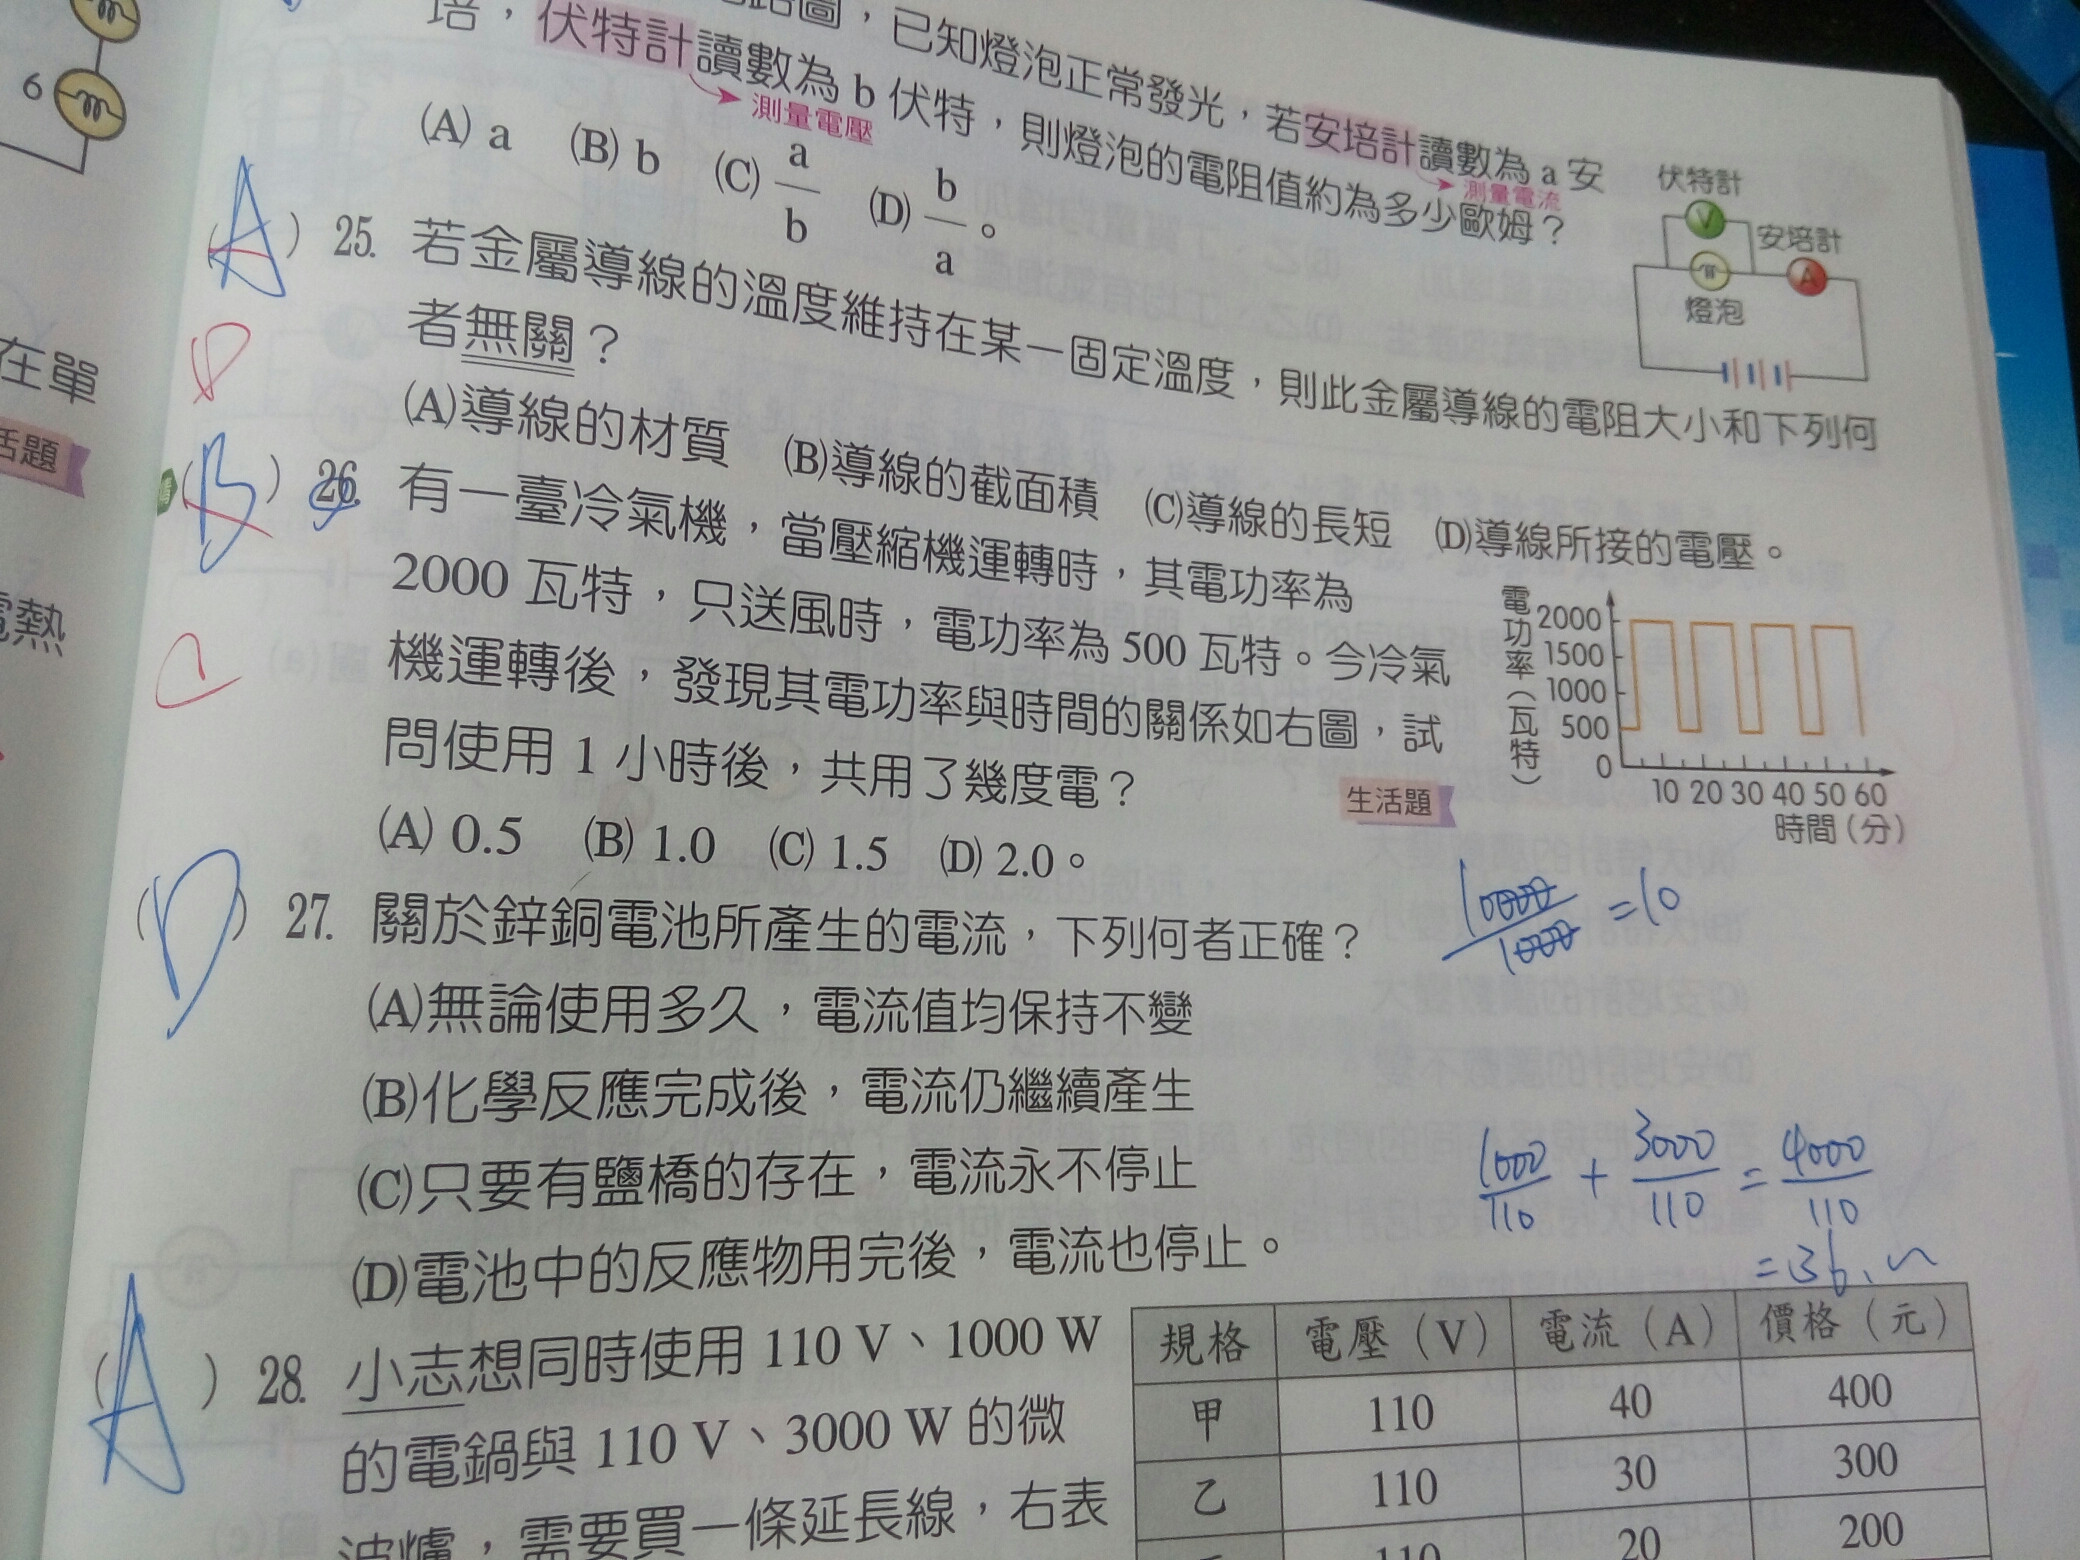 6
在單
活題
電熱
路圖，已知燈泡正常發光，若安培計讀數為 a 安
培，伏特計讀數為 b 伏特，則燈泡的電阻值約為多少歐姆？
測量電流
測量電壓
(A) a (B) b (C) a/b (D) b/a。
伏特計
V
安培計
A
燈泡
(A) 25. 若金屬導線的溫度維持在某一固定溫度，則此金屬導線的電阻大小和下列何
者無關？
D
(A)導線的材質 (B)導線的截面積 (C)導線的長短 (D)導線所接的電壓。
(B) 26. 有一臺冷氣機，當壓縮機運轉時，其電功率為
2000 瓦特，只送風時，電功率為 500 瓦特。今冷氣
C
機運轉後，發現其電功率與時間的關係如右圖，試
問使用 1 小時後，共用了幾度電？
生活題
(A) 0.5 (B) 1.0 (C) 1.5 (D) 2.0。
電功率（瓦特）
2000
1500
1000
500
0
10 20 30 40 50 60
時間（分）
10000/1000 = 10
(D) 27. 關於鋅銅電池所產生的電流，下列何者正確？
(A)無論使用多久，電流值均保持不變
(B)化學反應完成後，電流仍繼續產生
(C)只要有鹽橋的存在，電流永不停止
(D)電池中的反應物用完後，電流也停止。
1000/110 + 3000/110 = 4000/110
(A) 28. 小志想同時使用 110 V、1000 W
的電鍋與 110 V、3000 W 的微
波爐，需要買一條延長線，右表
規格 電壓（V） 電流（A） 價格（元）
甲 110 40 400
乙 110 30 300
110 20 200